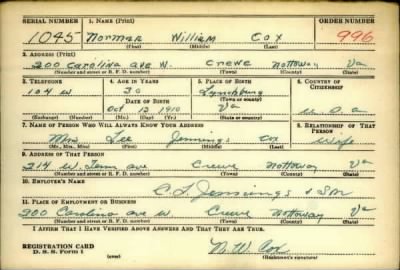 SERIAL NUMBER 1. NAME (Print) ORDER NUMBER
1045 Norman William Cox 996
(First) (Middle) (Last)
2. ADDRESS (Print)
200 Carolina ave W. Crewe Nottoway Va
(Number and street or R. F. D. number) (Town) (County) (State)
3. TELEPHONE 4. AGE IN YEARS 5. PLACE OF BIRTH 6. COUNTRY OF CITIZENSHIP
104 W 30 Lynchburg
DATE OF BIRTH (Town or county)
Oct 13 1910 Va U.S.A
(Exchange) (Number) (Mo.) (Day) (Yr.) (State or country)
7. NAME OF PERSON WHO WILL ALWAYS KNOW YOUR ADDRESS 8. RELATIONSHIP OF THAT PERSON
Mrs Lee Jennings Cox wife
(Mr., Mrs., Miss) (First) (Middle) (Last)
9. ADDRESS OF THAT PERSON
214 W. Tenn ave Crewe Nottoway Va
(Number and street or R. F. D. number) (Town) (County) (State)
10. EMPLOYER'S NAME
C. L. Jennings & Son
11. PLACE OF EMPLOYMENT OR BUSINESS
200 Carolina ave W Crewe Nottoway Va
(Number and street or R. F. D. number) (Town) (County) (State)
I AFFIRM THAT I HAVE VERIFIED ABOVE ANSWERS AND THAT THEY ARE TRUE.
REGISTRATION CARD
D. S. S. Form 1 N. W. Cox
(Registrant's signature)